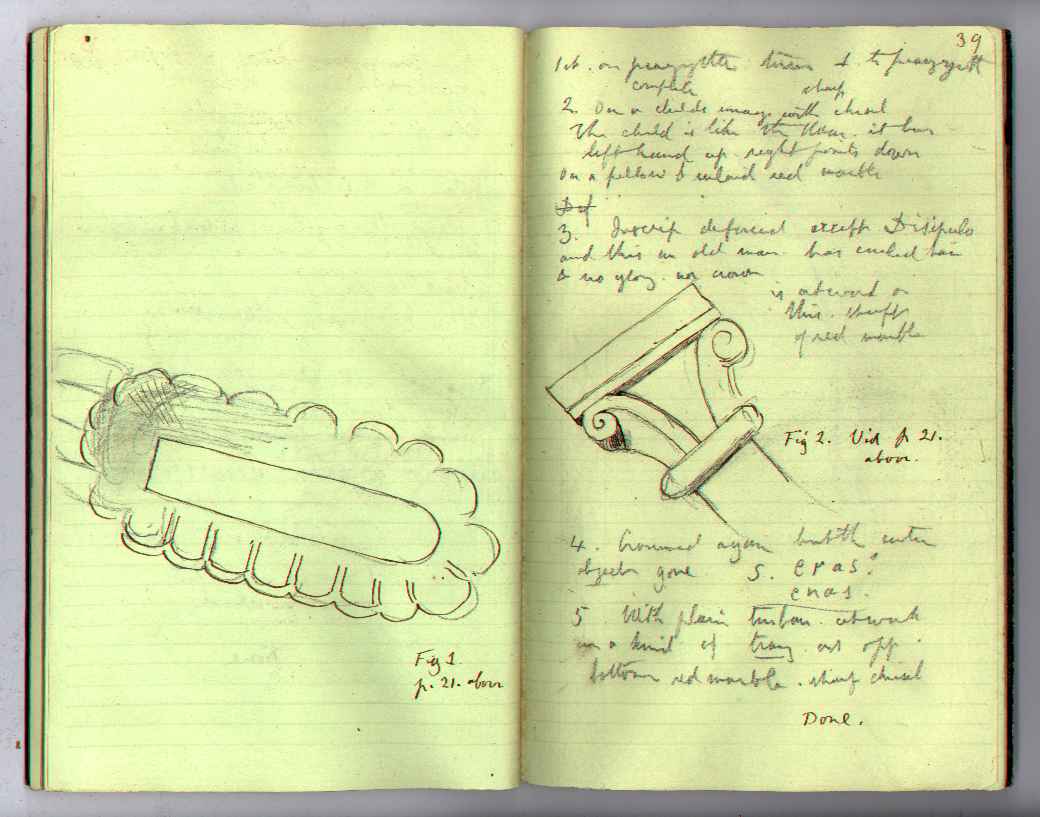 Fig 1.
p. 21. above
39
1st. on
complete sharp
2. On a childs image with chisel
The child is like the it has
left hand up. right points down
on a pillow & inlaid red marble
3. Inscrip defaced except Disipulo
and this an old man. has curled hair
& no glory. nor crown
is at word on
this. shaft
of red marble
Fig 2. Vid p. 21.
above.
4. Crowned again but the
objects gone S. eras?
enas.
5. With plain turban. at work
on a kind of
bottom red marble. sharp chisel
Done.